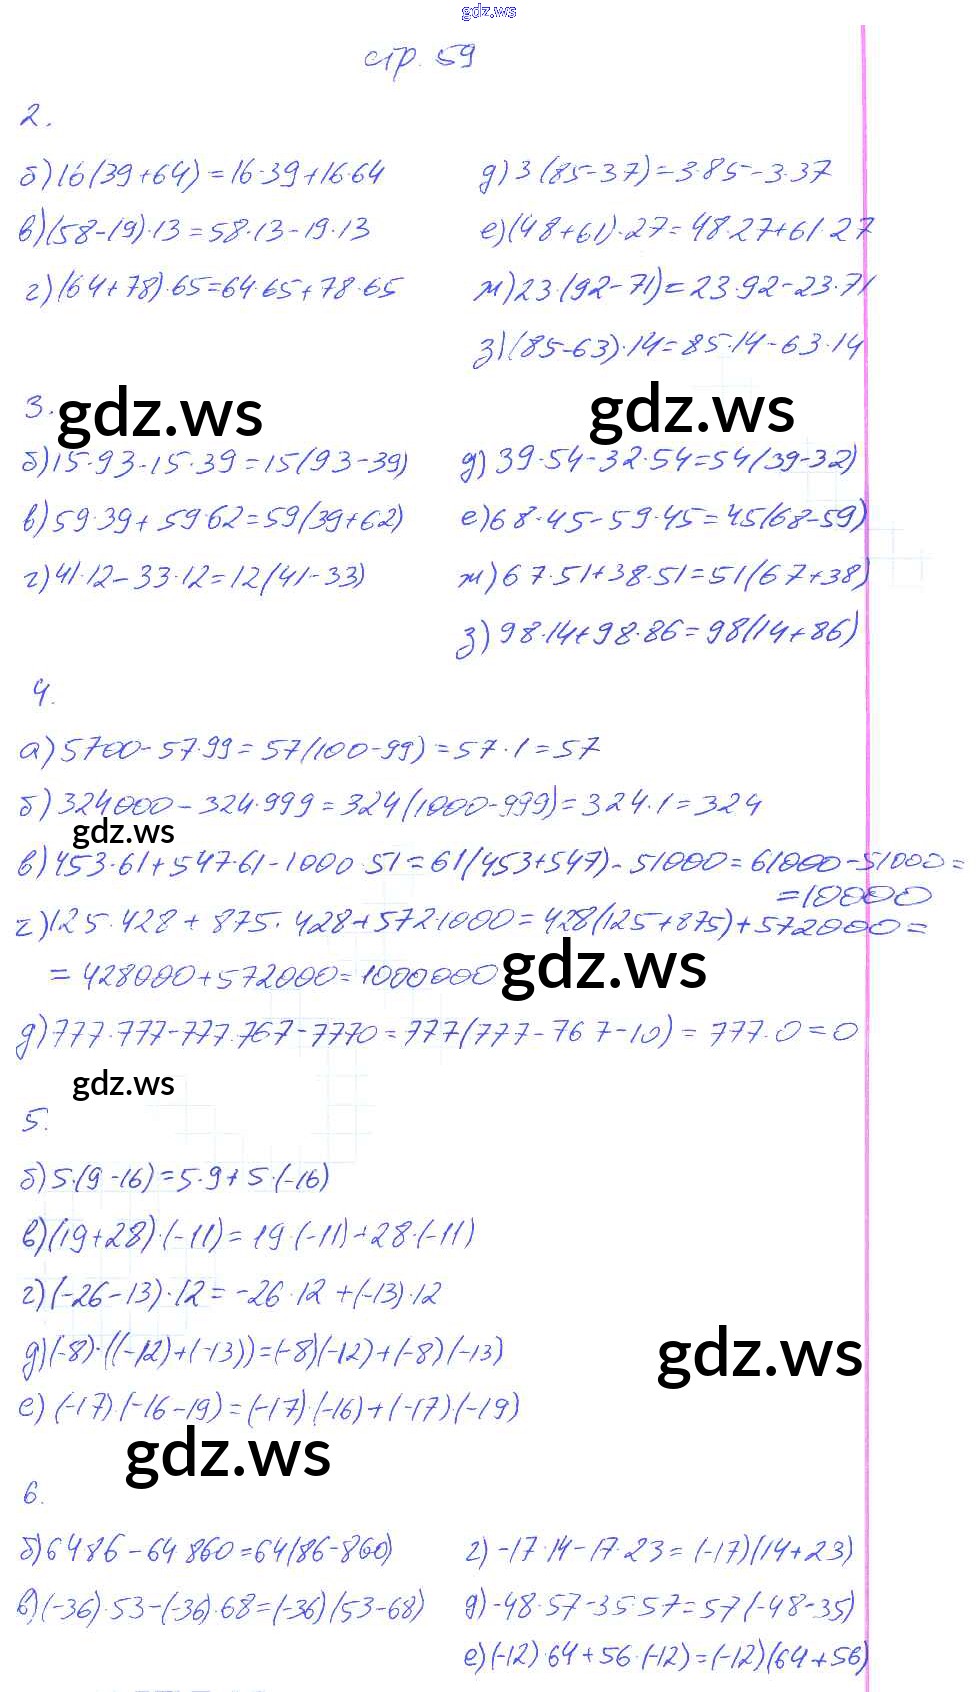 gdz.ws
стр. 59
2.
б) 16(39+64) = 16·39+16·64
в) (58-19)·13 = 58·13-19·13
г) (64+78)·65 = 64·65+78·65
д) 3(85-37) = 3·85-3·37
е) (48+61)·27 = 48·27+61·27
ж) 23·(92-71) = 23·92-23·71
з) (85-63)·14 = 85·14-63·14
gdz.ws
gdz.ws
3.
б) 15·93-15·39 = 15(93-39)
в) 59·39+59·62 = 59(39+62)
г) 41·12-33·12 = 12(41-33)
д) 39·54-32·54 = 54(39-32)
е) 68·45-59·45 = 45(68-59)
ж) 67·51+38·51 = 51(67+38)
з) 98·14+98·86 = 98(14+86)
4.
а) 5700-57·99 = 57(100-99) = 57·1 = 57
б) 324000-324·999 = 324(1000-999) = 324·1 = 324
gdz.ws
в) 453·61+547·61-1000·51 = 61(453+547)-51000 = 61000-51000 =
= 10000
г) 125·428+875·428+572·1000 = 428(125+875)+572000 =
= 428000+572000 = 1000000
gdz.ws
д) 777·777-777·767-7770 = 777(777-767-10) = 777·0 = 0
gdz.ws
5.
б) 5·(9-16) = 5·9+5·(-16)
в) (19+28)·(-11) = 19·(-11)+28·(-11)
г) (-26-13)·12 = -26·12+(-13)·12
д) (-8)·((-12)+(-13)) = (-8)(-12)+(-8)(-13)
gdz.ws
е) (-17)·(-16-19) = (-17)·(-16)+(-17)·(-19)
gdz.ws
6.
б) 64·86-64·860 = 64(86-860)
в) (-36)·53-(-36)·68 = (-36)(53-68)
г) -17·14-17·23 = (-17)(14+23)
д) -48·57-35·57 = 57(-48-35)
е) (-12)·64+56·(-12) = (-12)(64+56)